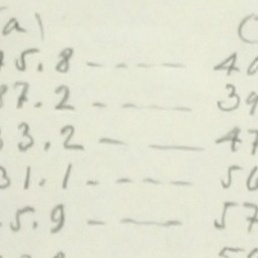 a)
5.8 ---- 40
87.2 ---- 39
3.2 -- -- 47
31.1 ---- 50
5.9 -- -- 57